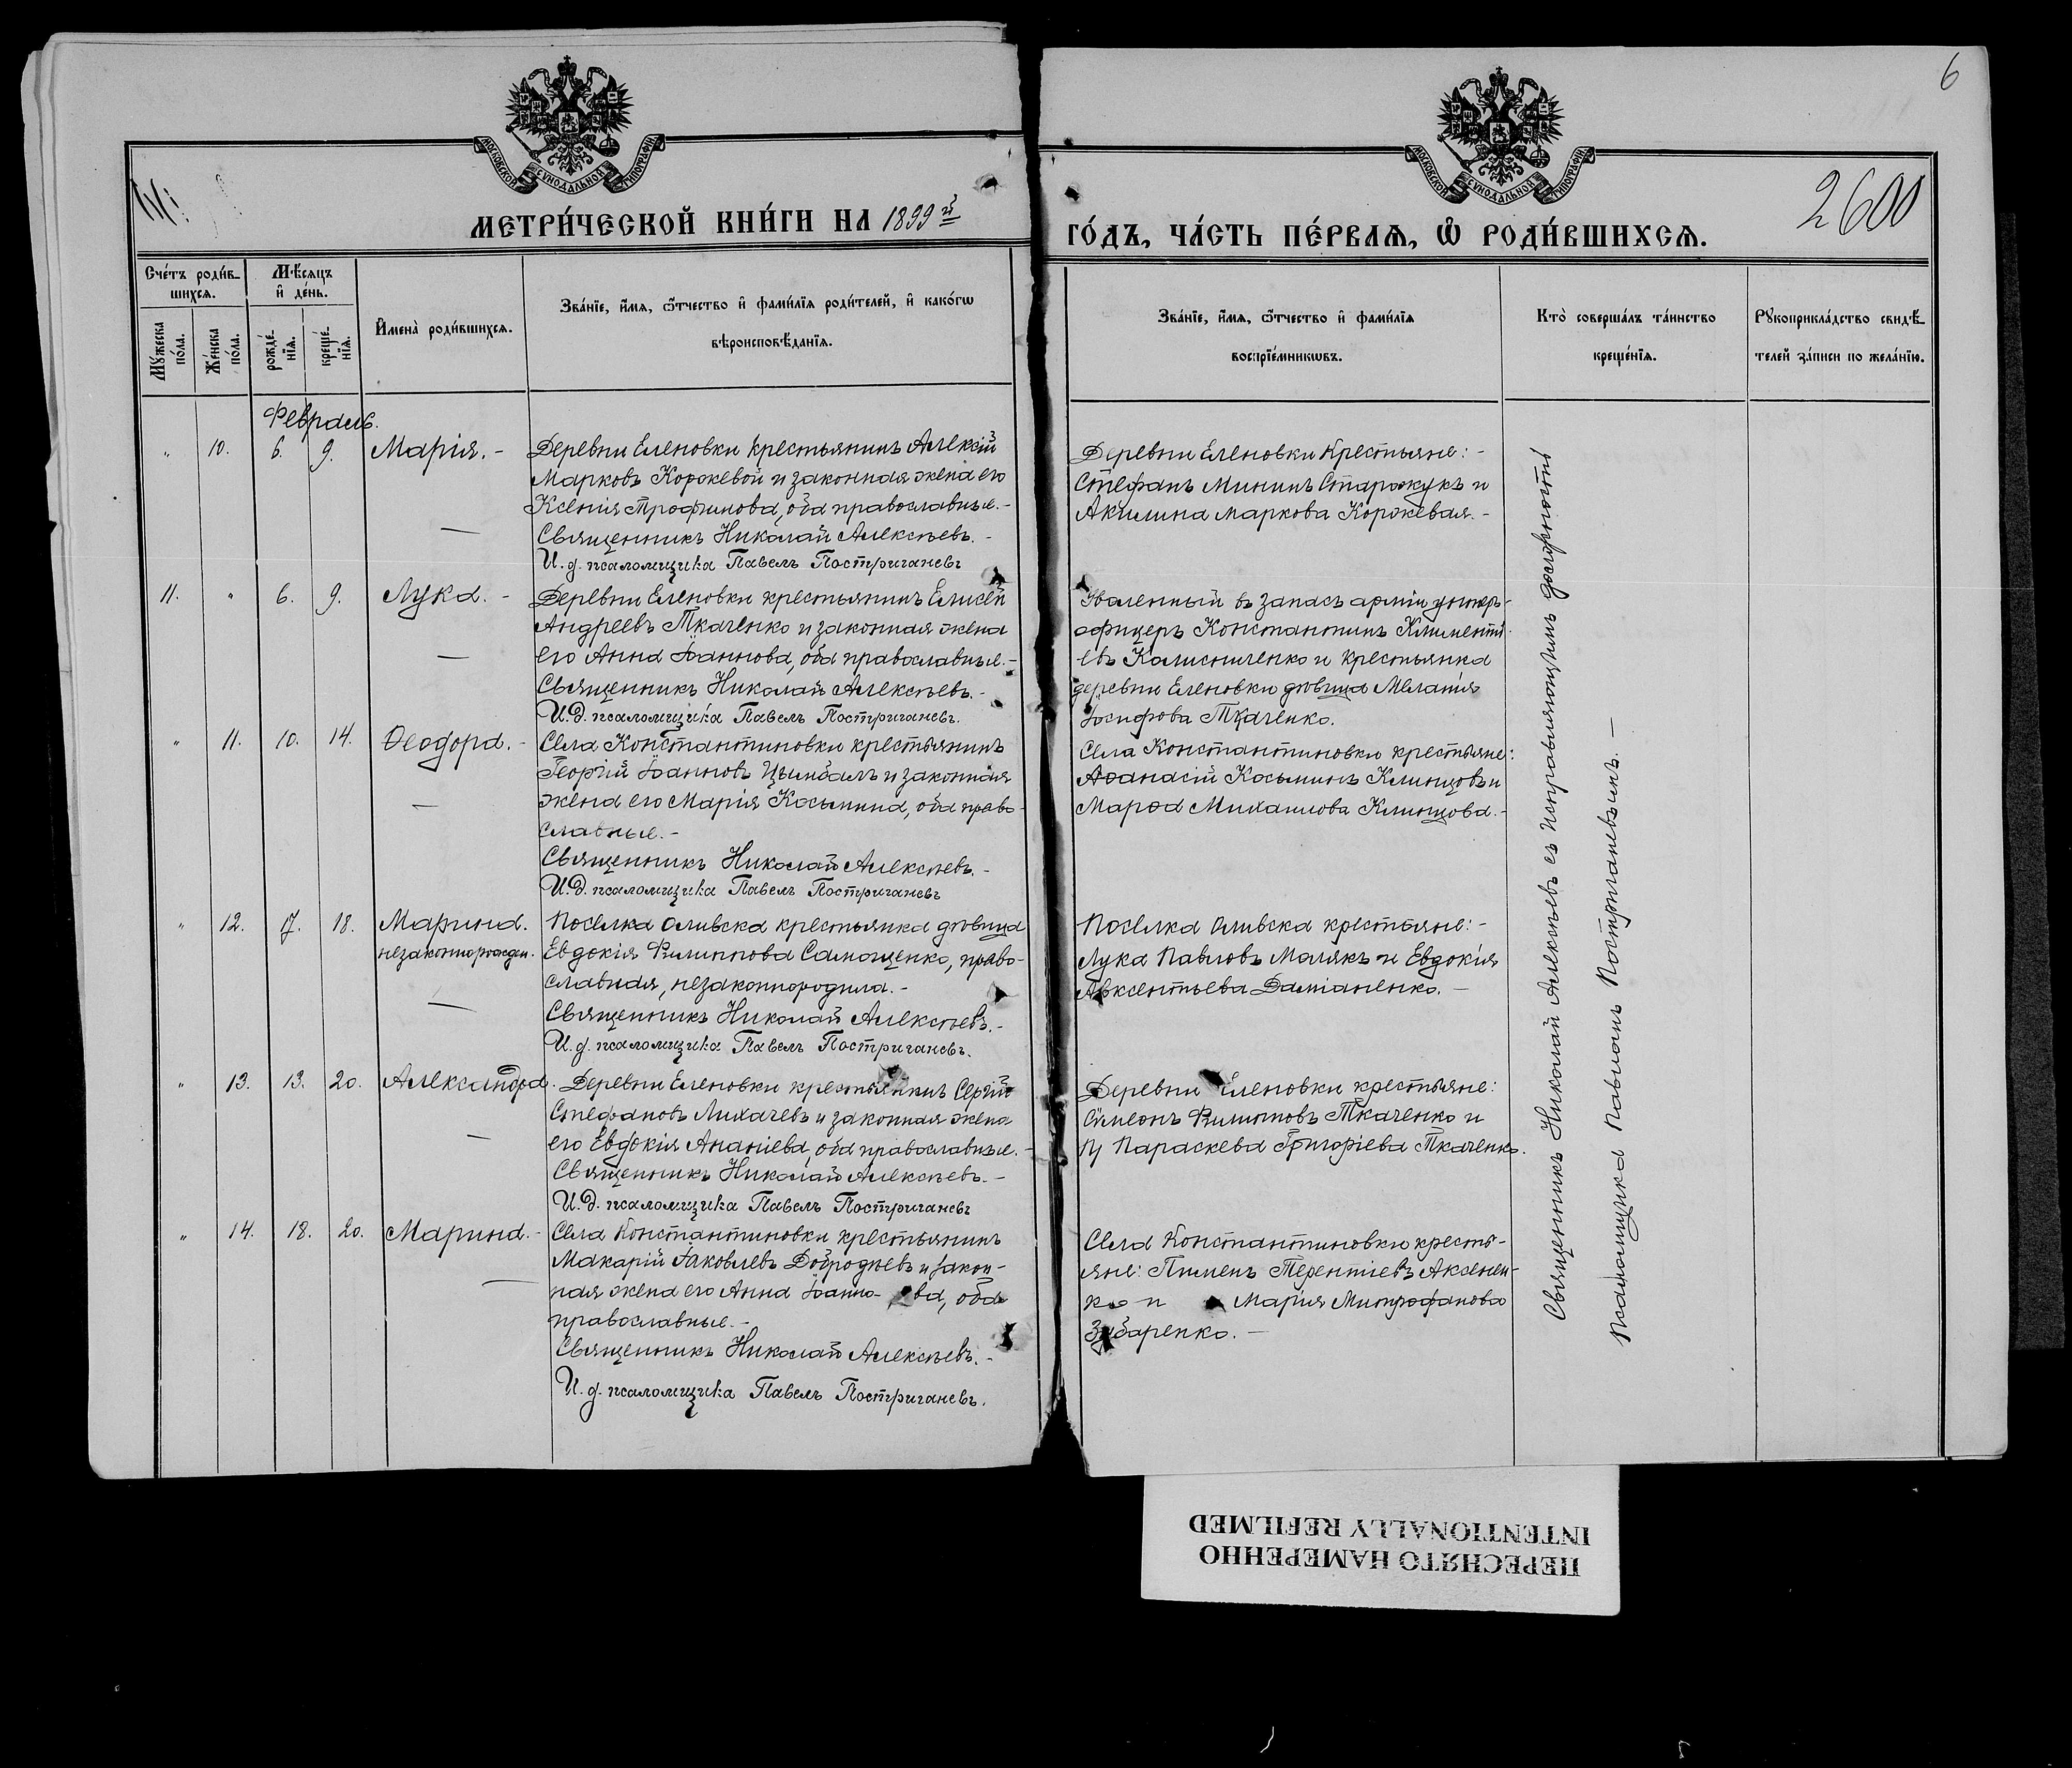 6
МОСКОВСКОЙ СУНОДАЛЬНОЙ ТИПОГРАФІИ
МОСКОВСКОЙ СУНОДАЛЬНОЙ ТИПОГРАФІИ
2600
МЕТРИ́ЧЕСКОЙ КНИ́ГИ НА 1899й
ГО́ДЪ, ЧА́СТЬ ПЕ́РВАѦ, Ѡ РОДИ́ВШИХСѦ.
Сче́тъ роди́в-
шихсѧ.
Мѣ́сѧцъ
и҆ де́нь.
Мꙋ́жеска
по́ла.
Же́нска
по́ла.
рожде́-
нїѧ.
креще́-
нїѧ.
И҆мена̀ роди́вшихсѧ.
Зва́нїе, и҆́мѧ, ѻ҆́тчество и҆ фами́лїѧ роди́телей, и҆ како́гѡ
вѣроисповѣ́данїѧ.
Зва́нїе, и҆́мѧ, ѻ҆́тчество и҆ фами́лїѧ
воспрїе́мникѡвъ.
Кто̀ соверша́лъ та́инство
креще́нїѧ.
Рꙋкоприкла́дство свидѣ́-
телей за́писи по жела́нїю.
Февраль.
" 10. 6. 9. Марія. -
Деревни Еленовки крестьянинъ Алексій
Марковъ Коржевой и законная жена его
Ксенія Трофимова, оба православные. -
Священникъ Николай Алексѣевъ. -
И. д. псаломщика Павелъ Постриганевъ
Деревни Еленовки Крестьяне: -
Стефанъ Мининъ Старжукъ и
Акилина Маркова Коржевая. -
11. " 6. 9. Лука. -
Деревни Еленовки крестьянинъ Елисей
Андреевъ Ткаченко и законная жена
его Анна Іоаннова, оба православные. -
Священникъ Николай Алексѣевъ. -
И. д. псаломщика Павелъ Постриганевъ.
Уволенный въ запасъ арміи унтеръ-
офицеръ Константинъ Климентi-
евъ Колисниченко и крестьянка
деревни Еленовки дѣвица Меланія
Іосифова Ткаченко.
" 11. 10. 14. Ѳеодора. -
Села Константиновки крестьянинъ
Георгій Іоанновъ Цымбалъ и законная
жена его Марія Косьмина, оба право-
славные. -
Священникъ Николай Алексѣевъ. -
И. д. псаломщика Павелъ Постриганевъ
Села Константиновки крестьяне:
Аѳанасій Косьминъ Климцовъ и
Марѳа Михаилова Климцова. -
" 12. 17. 18. Марина.
незаконнорожден.
Поселка Оливска крестьянка дѣвица
Евдокія Филиппова Самощенко, право-
славная, незаконнородила. -
Священникъ Николай Алексѣевъ. -
И. д. псаломщика Павелъ Постриганевъ.
Поселка Оливска крестьяне: -
Лука Павловъ Молякъ и Евдокія
Авксентьева Даміаненко. -
" 13. 13. 20. Александра.
Деревни Еленовки крестьянинъ Сергій
Стефановъ Лихачевъ и законная жена
его Евдокія Ананіева, оба православные. -
Священникъ Николай Алексѣевъ. -
И. д. псаломщика Павелъ Постриганевъ
Деревни Еленовки крестьяне:
Симеонъ Филиповъ Ткаченко и
Параскева Григоріева Ткаченко.
" 14. 18. 20. Марина. -
Села Константиновки крестьянинъ
Макарій Іаковлевъ Добродѣевъ и закон-
ная жена его Анна Іоанно-ва, оба
православные. -
Священникъ Николай Алексѣевъ. -
И. д. псаломщика Павелъ Постриганевъ.
Села Константиновки кресть-
яне: Пименъ Терентіевъ Аксенен-
ко и Марія Митрофанова
Зубаренко. -
Священникъ Николай Алексѣевъ съ исправляющимъ должность
Псаломщика Павломъ Постриганевымъ. -
ПЕРЕСНЯТО НАМЕРЕННО
INTENTIONALLY REFILMED